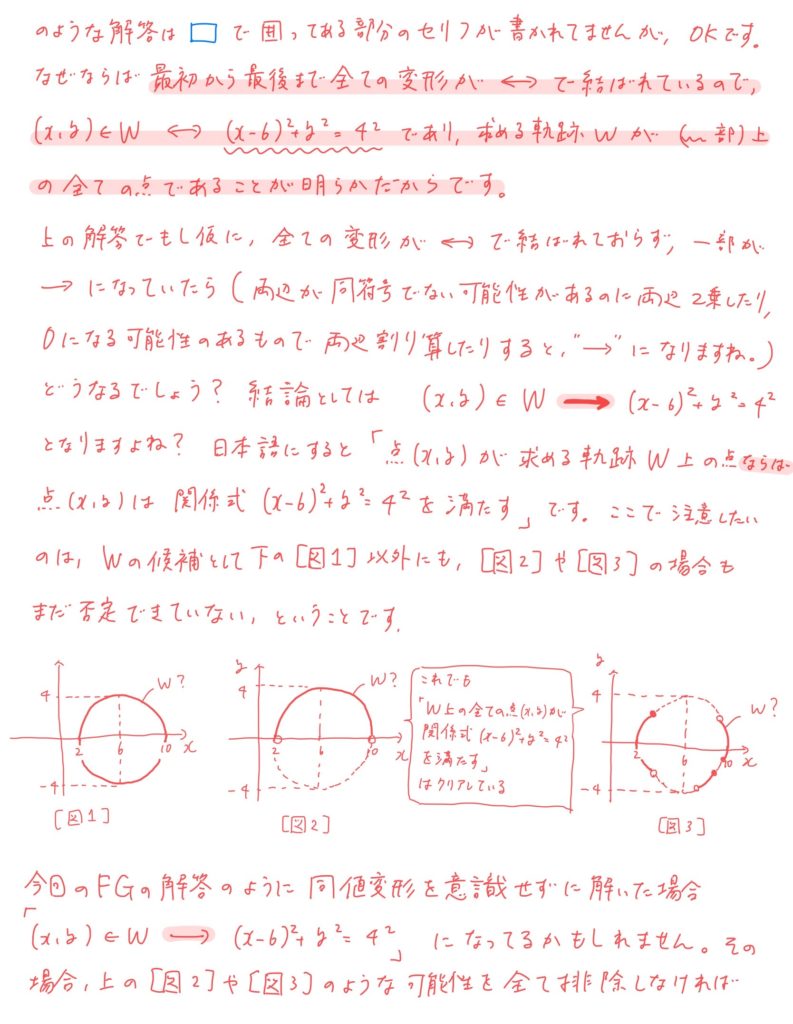 のような解答は □ で囲ってある部分のセリフが書かれてませんが, OKです。
なぜならば 最初から最後まで全ての変形が ⟷ で結ばれているので,
(x,y)∈W ⟷ (x-6)²+y²=4² であり, 求める軌跡Wが (〰部) 上
の全ての点であることが明らかだからです。
上の解答でもし仮に, 全ての変形が ⟷ で結ばれておらず, 一部が
→ になっていたら (両辺が同符号でない可能性があるのに両辺2乗したり,
0になる可能性のあるもので両辺割り算したりすると, "→" になりますね。)
どうなるでしょう? 結論としては (x,y)∈W → (x-6)²+y²=4²
となりますよね? 日本語にすると「点(x,y)が求める軌跡W上の点ならば
点(x,y)は 関係式 (x-6)²+y²=4² を満たす」です。ここで注意したい
のは, Wの候補として下の[図1]以外にも, [図2]や[図3]の場合も
まだ否定できていない, ということです.
4 W? 2 6 10 x -4
[図1]
y 4 W? 2 6 10 x -4
[図2]
これでも
「W上の全ての点(x,y)が
関係式 (x-6)²+y²=4²
を満たす」
はクリアしている
y 4 W? 2 6 10 x -4
[図3]
今回のFGの解答のように同値変形を意識せずに解いた場合
「(x,y)∈W → (x-6)²+y²=4²」 になってるかもしれません。その
場合, 上の[図2]や[図3]のような可能性を全て排除しなければ